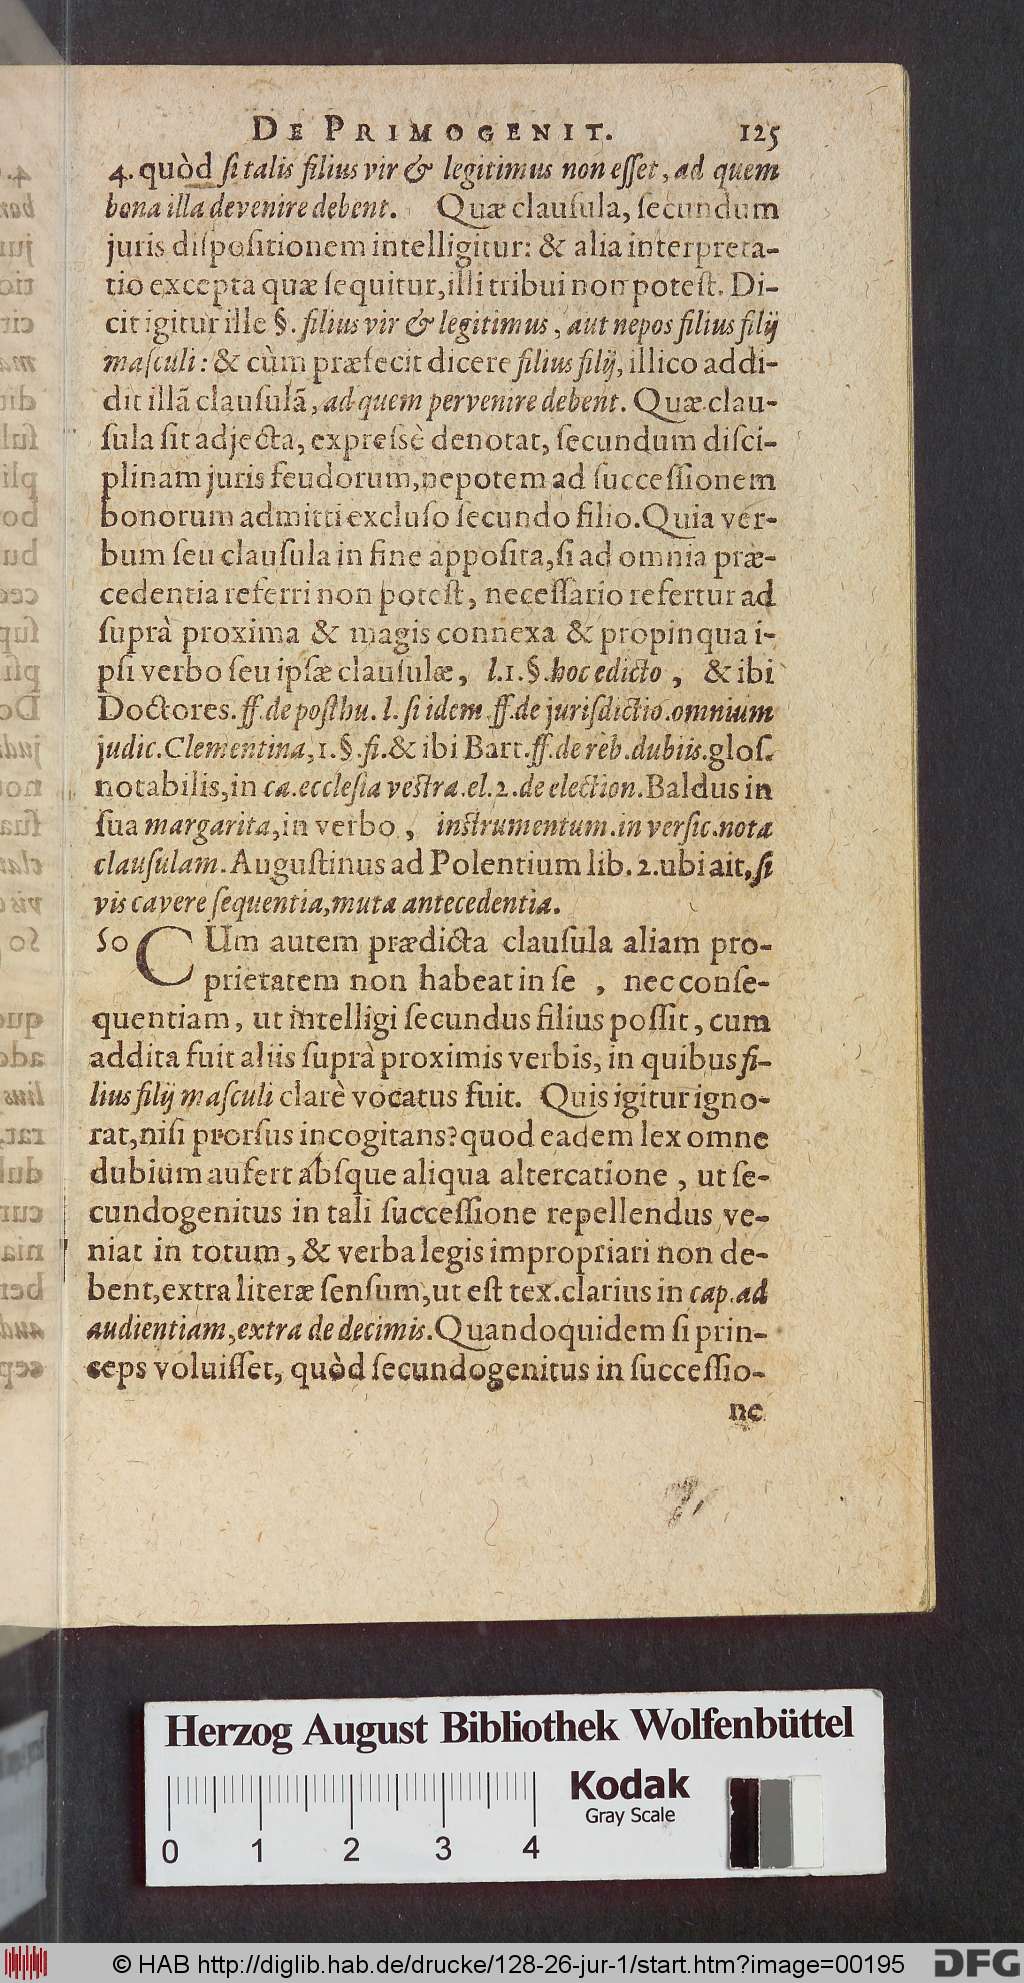 DE PRIMOGENIT. 125
4. quòd si talis filius vir & legitimus non esset, ad quem
bona illa devenire debent. Quæ clausula, secundum
juris dispositionem intelligitur: & alia interpreta-
tio excepta quæ sequitur, illi tribui non potest. Di-
cit igitur ille §. filius vir & legitimus, aut nepos filius filij
masculi: & cùm præfecit dicere filius filij, illico addi-
dit illã clausulã, ad quem pervenire debent. Quæ clau-
sula sit adjecta, expressè denotat, secundum disci-
plinam juris feudorum, nepotem ad successionem
bonorum admitti excluso secundo filio. Quia ver-
bum seu clausula in fine apposita, si ad omnia præ-
cedentia referri non potest, necessario refertur ad
suprà proxima & magis connexa & propinqua i-
psi verbo seu ipsæ clausulæ, l.1.§. hoc edicto, & ibi
Doctores. ff. de posthu. l. si idem ff. de jurisdictio. omnium
judic. Clementina, 1.§. fi. & ibi Bart. ff. de reb. dubiis. glos.
notabilis, in ca. ecclesia vestra. el. 2. de election. Baldus in
sua margarita, in verbo, instrumentum. in versic. nota
clausulam. Augustinus ad Polentium lib. 2. ubi ait, si
vis cavere sequentia, muta antecedentia.
50 CUm autem prædicta clausula aliam pro-
prietatem non habeat in se, nec conse-
quentiam, ut intelligi secundus filius possit, cum
addita fuit aliis suprà proximis verbis, in quibus fi-
lius filij masculi clarè vocatus fuit. Quis igitur igno-
rat, nisi prorsus incogitans? quod eadem lex omne
dubium aufert absque aliqua altercatione, ut se-
cundogenitus in tali successione repellendus ve-
niat in totum, & verba legis impropriari non de-
bent, extra literæ sensum, ut est tex. clarius in cap. ad
audientiam, extra de decimis. Quandoquidem si prin-
ceps voluisset, quòd secundogenitus in successio-
ne
Herzog August Bibliothek Wolfenbüttel
Kodak
Gray Scale
0 1 2 3 4
© HAB http://diglib.hab.de/drucke/128-26-jur-1/start.htm?image=00195
DFG